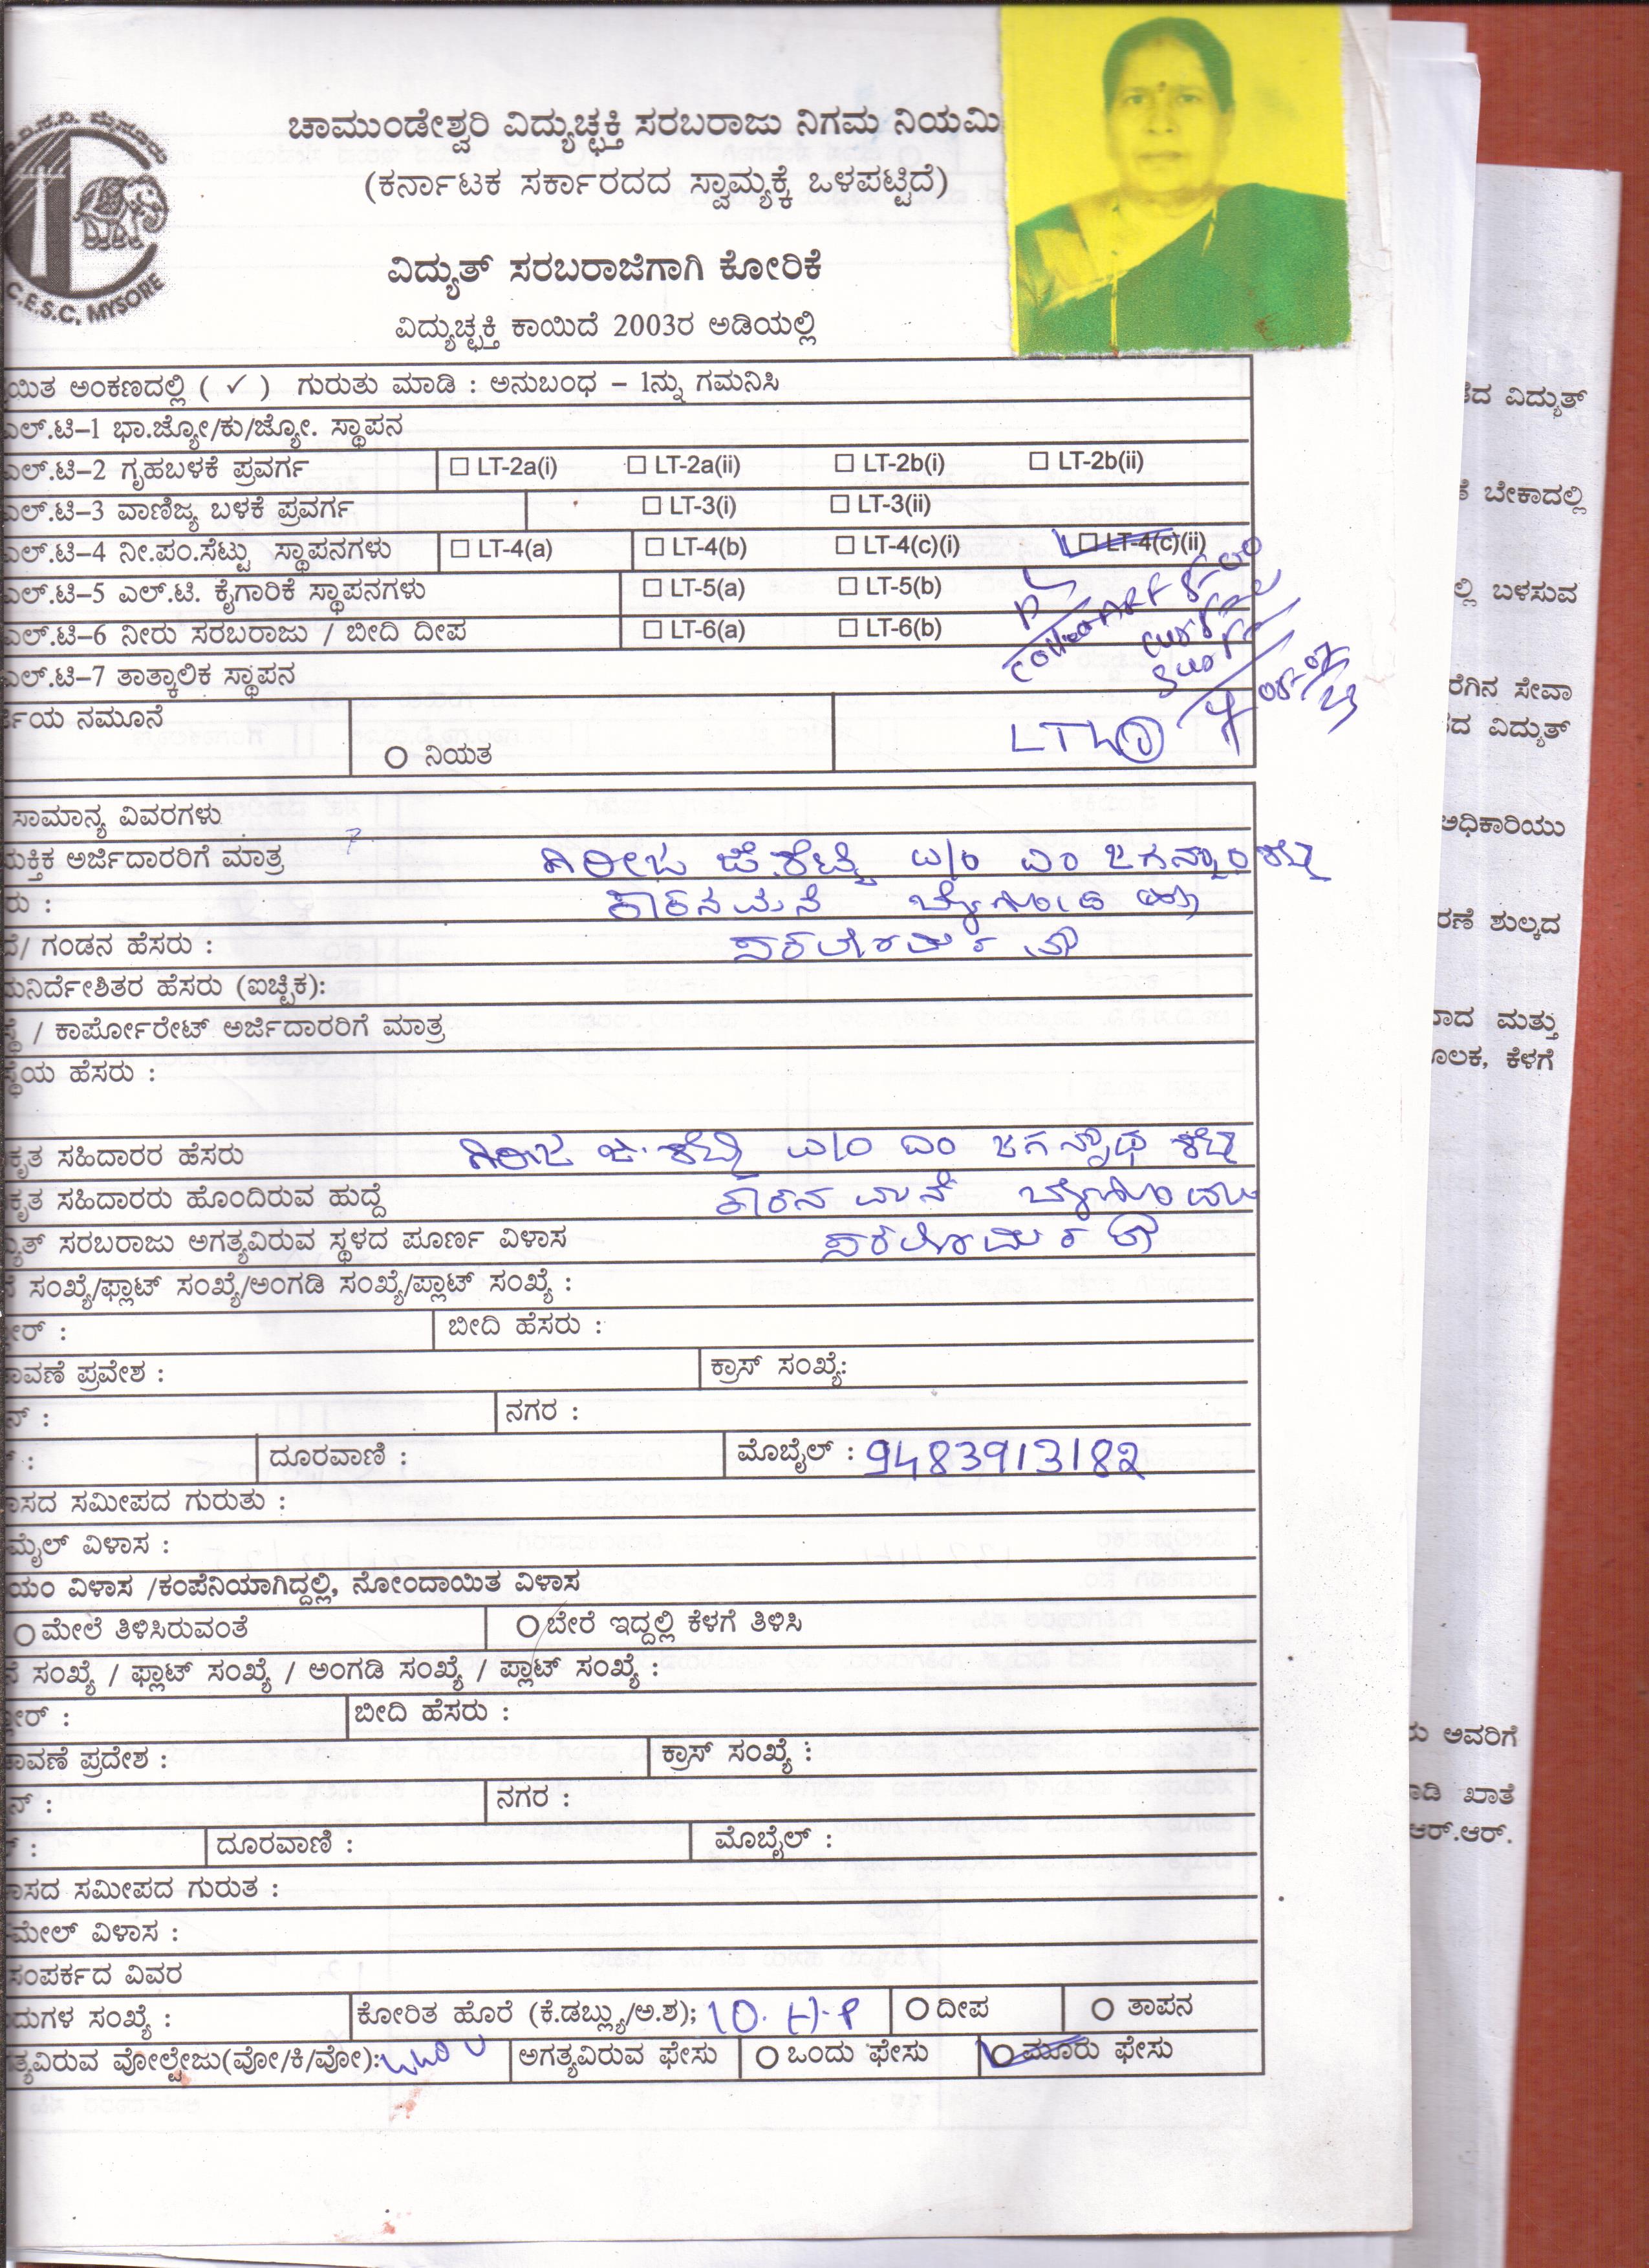 C.E.S.C, MYSORE
ಚಾಮುಂಡೇಶ್ವರಿ ವಿದ್ಯುಚ್ಛಕ್ತಿ ಸರಬರಾಜು ನಿಗಮ ನಿಯಮಿ
(ಕರ್ನಾಟಕ ಸರ್ಕಾರದದ ಸ್ವಾಮ್ಯಕ್ಕೆ ಒಳಪಟ್ಟಿದೆ)
ವಿದ್ಯುತ್ ಸರಬರಾಜಿಗಾಗಿ ಕೋರಿಕೆ
ವಿದ್ಯುಚ್ಛಕ್ತಿ ಕಾಯಿದೆ 2003ರ ಅಡಿಯಲ್ಲಿ
ಯಿತ ಅಂಕಣದಲ್ಲಿ ( ✓ ) ಗುರುತು ಮಾಡಿ : ಅನುಬಂಧ – 1ನ್ನು ಗಮನಿಸಿ
ಎಲ್.ಟಿ–1 ಭಾ.ಜ್ಯೋ/ಕು/ಜ್ಯೋ. ಸ್ಥಾಪನ
ಎಲ್.ಟಿ–2 ಗೃಹಬಳಕೆ ಪ್ರವರ್ಗ LT-2a(i) LT-2a(ii) LT-2b(i) LT-2b(ii)
ಎಲ್.ಟಿ–3 ವಾಣಿಜ್ಯ ಬಳಕೆ ಪ್ರವರ್ಗ LT-3(i) LT-3(ii)
ಎಲ್.ಟಿ–4 ನೀ.ಪಂ.ಸೆಟ್ಟು ಸ್ಥಾಪನಗಳು LT-4(a) LT-4(b) LT-4(c)(i) LT-4(c)(ii)
ಎಲ್.ಟಿ–5 ಎಲ್.ಟಿ. ಕೈಗಾರಿಕೆ ಸ್ಥಾಪನಗಳು LT-5(a) LT-5(b)
ಎಲ್.ಟಿ–6 ನೀರು ಸರಬರಾಜು / ಬೀದಿ ದೀಪ LT-6(a) LT-6(b)
ಎಲ್.ಟಿ–7 ತಾತ್ಕಾಲಿಕ ಸ್ಥಾಪನ
ಯ ನಮೂನೆ
ನಿಯತ
ಸಾಮಾನ್ಯ ವಿವರಗಳು
ಯಕ್ತಿಕ ಅರ್ಜಿದಾರರಿಗೆ ಮಾತ್ರ ಗಿರೀಜ ಜೆ.ಶೆಟ್ಟಿ
ರು :
/ ಗಂಡನ ಹೆಸರು :
ಮನಿರ್ದೇಶಿತರ ಹೆಸರು (ಐಚ್ಛಿಕ):
/ ಕಾರ್ಪೋರೇಟ್ ಅರ್ಜಿದಾರರಿಗೆ ಮಾತ್ರ
ಸ್ಥೆಯ ಹೆಸರು :
ಕೃತ ಸಹಿದಾರರ ಹೆಸರು ಗಿರೀಜ ಜೆ.ಶೆಟ್ಟಿ W/O ಎಂ ಜಗನ್ನಾಥ ಶೆಟ್ಟಿ
ಕೃತ ಸಹಿದಾರರು ಹೊಂದಿರುವ ಹುದ್ದೆ
ಯುತ್ ಸರಬರಾಜು ಅಗತ್ಯವಿರುವ ಸ್ಥಳದ ಪೂರ್ಣ ವಿಳಾಸ
ಸಂಖ್ಯೆ/ಫ್ಲಾಟ್ ಸಂಖ್ಯೆ/ಅಂಗಡಿ ಸಂಖ್ಯೆ/ಪ್ಲಾಟ್ ಸಂಖ್ಯೆ :
ೋರ್ : ಬೀದಿ ಹೆಸರು :
ಾವಣೆ ಪ್ರವೇಶ : ಕ್ರಾಸ್ ಸಂಖ್ಯೆ:
ನ್ : ನಗರ :
: ದೂರವಾಣಿ : ಮೊಬೈಲ್ : 9483913182
ಾಸದ ಸಮೀಪದ ಗುರುತು :
ಮೈಲ್ ವಿಳಾಸ :
ಯಂ ವಿಳಾಸ /ಕಂಪೆನಿಯಾಗಿದ್ದಲ್ಲಿ, ನೋಂದಾಯಿತ ವಿಳಾಸ
ಮೇಲೆ ತಿಳಿಸಿರುವಂತೆ ಬೇರೆ ಇದ್ದಲ್ಲಿ ಕೆಳಗೆ ತಿಳಿಸಿ
ನೆ ಸಂಖ್ಯೆ / ಫ್ಲಾಟ್ ಸಂಖ್ಯೆ / ಅಂಗಡಿ ಸಂಖ್ಯೆ / ಪ್ಲಾಟ್ ಸಂಖ್ಯೆ :
ೋರ್ : ಬೀದಿ ಹೆಸರು :
ಾವಣೆ ಪ್ರದೇಶ : ಕ್ರಾಸ್ ಸಂಖ್ಯೆ :
ನ್ : ನಗರ :
: ದೂರವಾಣಿ : ಮೊಬೈಲ್ :
ಾಸದ ಸಮೀಪದ ಗುರುತ :
ಮೇಲ್ ವಿಳಾಸ :
ಸಂಪರ್ಕದ ವಿವರ
ದುಗಳ ಸಂಖ್ಯೆ : ಕೋರಿತ ಹೊರೆ (ಕೆ.ಡಬ್ಲ್ಯು/ಅ.ಶ); 10. H.P ದೀಪ ತಾಪನ
ಗತ್ಯವಿರುವ ವೋಲ್ಟೇಜು(ವೋ/ಕಿ/ವೋ): ಅಗತ್ಯವಿರುವ ಫೇಸು ಒಂದು ಫೇಸು ಮೂರು ಫೇಸು
ದ ವಿದ್ಯುತ್
ಬೇಕಾದಲ್ಲಿ
ಲ್ಲಿ ಬಳಸುವ
ರೆಗಿನ ಸೇವಾ
ದ ವಿದ್ಯುತ್
ಅಧಿಕಾರಿಯು
ರಣೆ ಶುಲ್ಕದ
ಾದ ಮತ್ತು
ೂಲಕ, ಕೆಳಗೆ
ಅವರಿಗೆ
ಾಡಿ ಖಾತೆ
ಆರ್.ಆರ್.